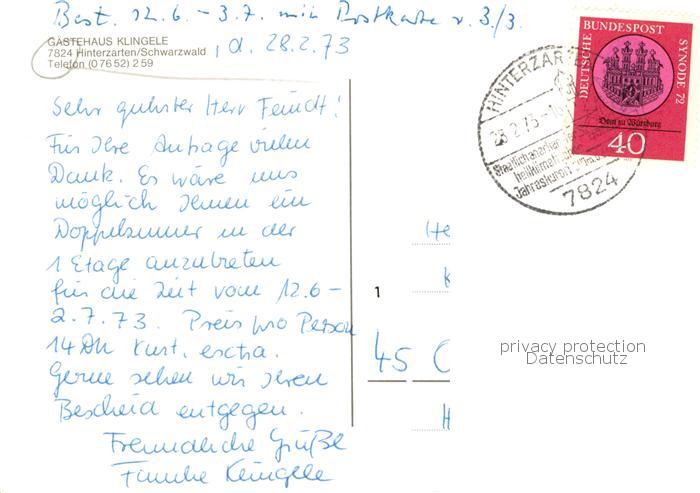 Best. 12.6. - 3.7. mit Postkarte v. 3/3.
GÄSTEHAUS KLINGELE
7824 Hinterzarten/Schwarzwald
Telefon (0 76 52) 2 59
, d. 28.2.73
Sehr geehrter Herr Feindt!
Für Ihre Anfrage vielen
Dank. Es wäre uns
möglich Ihnen ein
Doppelzimmer in der
1 Etage anzubieten
für die Zeit vom 12.6 -
2.7.73. Preis pro Person
14 DM Kurt. extra.
Gerne sehen wir Ihren
Bescheid entgegen.
Freundliche Grüße
Familie Klingele
DEUTSCHE BUNDESPOST
SYNODE 72
Dom zu Würzburg
40
HINTERZAR
28.2.73-1
Staatlich anerkan
heilklimatisch
Jahreskurort
7824
He
K
1
45 O
H
privacy protection
Datenschutz